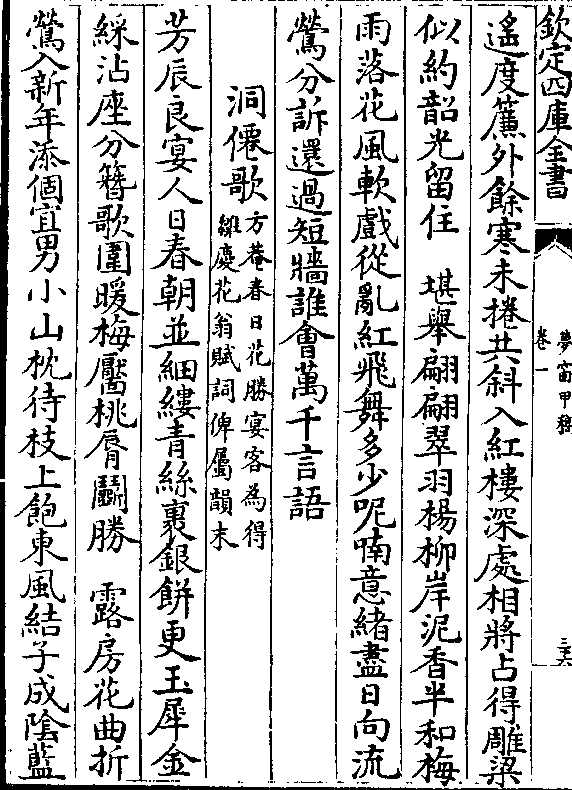 欽定四庫全書
夢窗甲稿
卷一
三六
遙度簾外餘寒未捲共斜入紅樓深處相將占得雕梁
似約韶光留住　堪舉翩翩翠羽楊柳岸泥香半和梅
雨落花風軟戲從亂紅飛舞多少呢喃意緒盡日向流
鶯分訴還過短牆誰會萬千言語
洞僊歌
方菴春日花勝宴客為得
雛慶花翁賦詞俾屬韻末
芳辰良宴人日春朝並細縷青絲裹銀餅更玉犀金
綵沾座分簪歌圍暖梅靨桃脣鬭勝　露房花曲折
鶯入新年添個宜男小山枕待枝上飽東風結子成陰藍